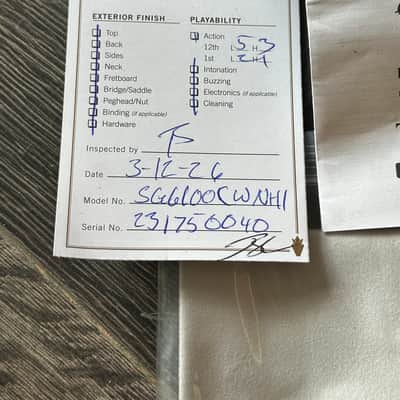 EXTERIOR FINISH
PLAYABILITY
Top
Back
Sides
Neck
Fretboard
Bridge/Saddle
Peghead/Nut
Binding (if applicable)
Hardware
Action
12th L 5 H 3
1st L 2 H 1
Intonation
Buzzing
Electronics (if applicable)
Cleaning
Inspected by TS
Date 3-12-26
Model No. SG6100CWNH1
Serial No. 231750040